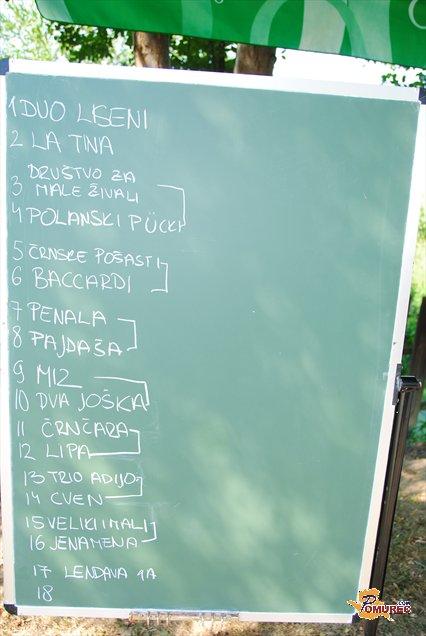 1 DUO LISENI
2 LA TINA
DRUŠTVO ZA
3 MALE ŽIVALI
4 POLANSKI PÜCKI
5 ČRNSKE POŠASTI
6 BACCARDI
7 PENALA
8 PAJDAŠA
9 MIZ
10 DVA JOŠKA
11 ČRNČARA
12 LIPA
13 TRIO ADIJO
14 CVEN
15 VELIKI I MALI
16 JENAMENA
17 LENDAVA 1A
18
POMUREC